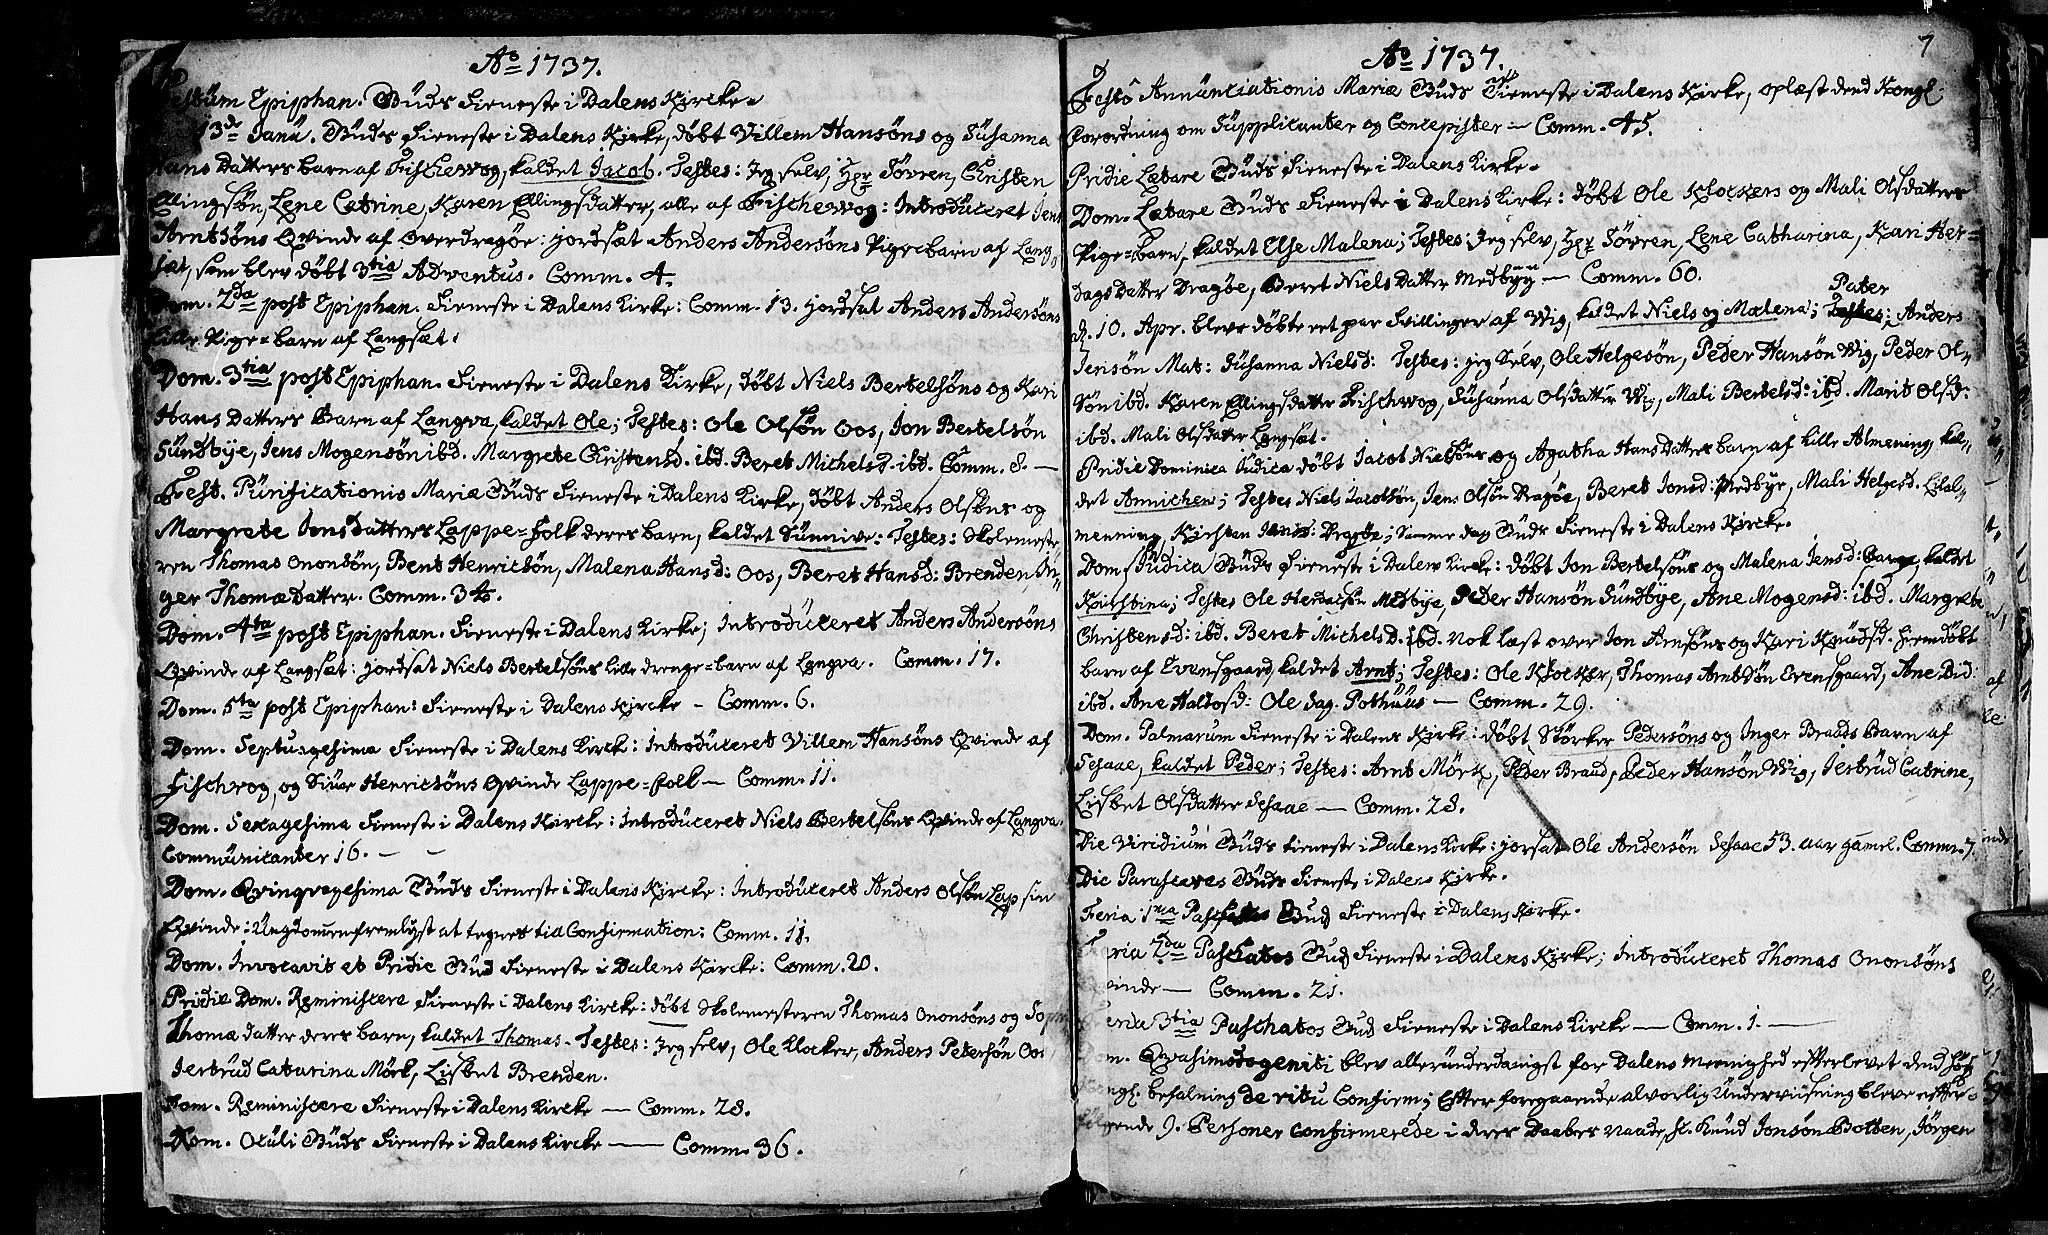 Ao 1737.
Festum Epiphan. Guds Tieneste i Dalens Kircke.
13de Janu. Guds Tieneste i Dalens Kirke, døbt Villem Hansøns og Susanna
Hans Datters barn af Fischevog, kaldet Jacob. Testes: Jeg selv, Hr Søvren, Christen
Ellingsøn, Lene Catrine, Karen Ellingsdatter, alle af Fischevog: Introduceret Jens
Arntsøns Qvinde af Overdragøe: jordsat Anders Andersøns Pigebarn af Lang-
sæt, som blev døbt 3tia Adventus. Comm. 4.
Dom. 2da post Epiphan. Tieneste i Dalens Kirke: Comm. 13. jordsat Anders Andersøns
lille Pige=barn af Langsæt.
Dom. 3tia post Epiphan. Tieneste i Dalens Kirke, døbt Niels Bertelsøns og Kari
Hans datters Barn af Langva, kaldet Ole; Testes: Ole Olsøn Oos, Jon Bertelsøn
Sundbye, Jens Mogensøn ibd. Margrete Christensd. ibd. Beret Michelsd. ibd. Comm. 8. —
Fest. Purificationis Mariæ Guds Tieneste i Dalens Kirke, døbt Anders Olsøns og
Margrete Jons datters Lappe=Folk deres barn, kaldet Sunnive: Testes: Skolemeste-
ren Thomas Ononsøn, Bent Henricsøn, Malena Hansd: Oos, Beret Hansd: Brenden, In-
ger Thomædatter. Comm. 34.
Dom. 4ta post Epiphan. Tieneste i Dalens Kirke; Introduceret Anders Andersøns
Qvinde af Langsæt: jordsat Niels Bertelsøns lille drenge=barn af Langva. Comm. 17.
Dom. 5ta post Epiphan: Tieneste i Dalens Kircke — Comm. 6.
Dom. Septuagesima Tieneste i Dalens Kirck: Introduceret Villem Hansøns Qvinde af
Fischvog, og Siur Henricsøns Qvinde Lappe=folk — Comm. 11.
Dom. Sexagesima Tieneste i Dalens Kircke: Introduceret Niels Bertelsøns Qvinde af Langva.
Communicanter 16. — —
Dom. Qvinqvagesima Guds Tieneste i Dalens Kircke: Introduceret Anders Olsøn Lap sin
Qvinde: Ungdommen fremlyst at tegnes til Confirmation: Comm. 11.
Dom. Invocavit et Pridie Gud Tieneste i Dalens Kircke: Comm. 20.
Pridie Dom. Reminiscere Tieneste i Dalens Kircke: døbt Skolemesteren Thomas Ononsøns og
Thomæ datter deres barn, kaldet Thomas. Testes: Jeg selv, Ole Klocker, Anders Petersøn Oos,
Jertrud Catarina Mørk, Lisbet Brenden.
Dom. Reminiscere Tieneste i Dalens Kircke — Comm. 28.
Dom. Oculi Guds Tieneste i Dalens Kircke — Comm. 36.
7
Ao 1737.
Festo Annunciationis Mariæ Guds Tieneste i Dalens Kirke, oplæst dend Kongl.
Forordning om Supplicanter og Concepister — Comm. 45.
Pridie Lætare Guds Tieneste i Dalens Kirke.
Dom. Lætare Guds Tieneste i Dalens Kirke: døbt Ole Klockers og Mali Olsdatters
Pige=barn, kaldet Else Malena; Testes: Jeg selv, Hr Søvren, Lene Catharina, Kari Her-
dags Datter Dragøe, Beret Niels Datter Medbyn — Comm. 60.
d. 10. Apr. bleve døbte et par Tvillinger af Wig, kaldet Niels og Malena; Pater Anders
Jensøn Mat: Susanna Nielsd: Testes: jeg Selv, Ole Helgesøn, Peder Hansøn Wig, Peder Ol-
søn ibd. Karen Ellingsdatter Fischwog, Susanna Olsdatter Wig, Mali Bertelsd: ibd. Marit Olsd:
ibd. Mali Olsdatter Langsæt.
Pridie Dominica Judica døbt Jacob Nielsøns og Agatha Hans Datters barn af Lille Almening, kal-
det Annichen; Testes Niels Jacobsøn, Jens Olsøn Dragøe, Beret Jonsd: Medbye, Mali Helgesd. Lilal-
mening, Kirsten Jensd: Dragøe; Samme dag Guds Tieneste i Dalens Kircke.
Dom. Judica Guds Tieneste i Dalens Kirke: døbt Jon Bertelsøns og Malena Jensd: Barn, kaldet
Kirstina; Testes Ole Herdalsøn Medbye, Peder Hansøn Sundbye, Ane Mogensd: ibd. Margrete
Christensd: ibd. Beret Michelsd. ibd. Nok læst over Jon Arnsøns og Kari Knudsd. hiemdøbt
barn af Evensgaard, kaldet Arnt; Testes: Ole Klocker, Thomas Arntsøn Evensgaard, Ane
ibd. Ane Haldosd: Ole Jag. Pothuus — Comm. 29.
Dom. Palmarum Tieneste i Dalens Kirke: døbt Størker Pedersøns og Inger Brauds Barn af
Sesaae, kaldet Peder; Testes: Arnt Mørk, Peder Braud, Peder Hansøn Wig, Jertrud Catrine,
Lisbet Olsdatter Sesaae — Comm. 28.
Die Viridium Guds tieneste i Dalens Kirke: jorsat Ole Andersøn Sesaae 53. aar gamel. Comm. 7.
Die Parasceves Guds Tieneste i Dalens Kirke.
Feria 1ma Paschatos Gud Tieneste i Dalens Kirke.
Feria 2da Paschatos Gud Tieneste i Dalens Kirke; Introduceret Thomas Ononsøns
Qvinde — Comm. 21.
Feria 3tia Paschatos Gud Tieneste i Dalens Kircke — Comm. 1. —
Dom. Qvasimodogeniti blev allerunderdanigst for Dalens Meenighed efterlevet dend
Kongl. befalning de ritu Confirm; Efter foregaaende alvorlig Underviisning bleve efter-
følgende 9. Personer confirmerede i deres Daabes Naade, sc. Knud Jonsøn Botten, Jørgen